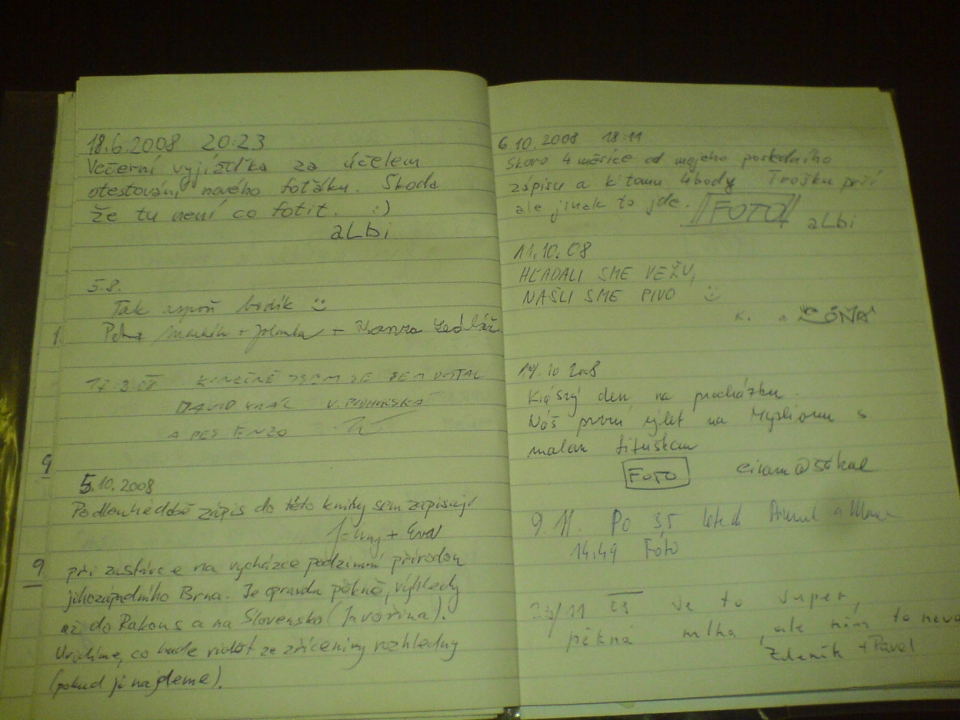 18.6.2008 20:23
Večerní vyjížďka za účelem
otestování nového foťáku. Škoda
že tu není co fotit. :)
aLbi
5.8.
Tak aspoň bodík
+ Jolanka +
KONEČNĚ JSEM SE SEM DOSTAL
DAVID
A PES ENZO
9
5.10.2008
Po dlouhé době zápis do této knihy sem zapisují
+ Eva
9
při zastávce na vycházce podzimní přírodou
jihozápadního Brna. Je opravdu pěkně, výhledy
až do Rakous a na Slovensko (Javořina).
Uvidíme, co bude vidět ze zříceniny rozhledny
(pokud ji najdeme).
6.10.2008 18:11
Skoro 4 měsíce od mojeho posledního
zápisu a k tomu 4body Trošku prší
ale jinak to jde. FOTO aLbi
11.10.08
HĽADALI SME VEŽU,
NAŠLI SME PIVO
K. a
14.10 2008
Krásný den na procházku.
Náš první výlet na s
malou
FOTO
9.11. Po 3,5 letech
14:49 Foto
29/11 Je to super,
pěkná mlha, ale nám to
Zdeněk + Pavel